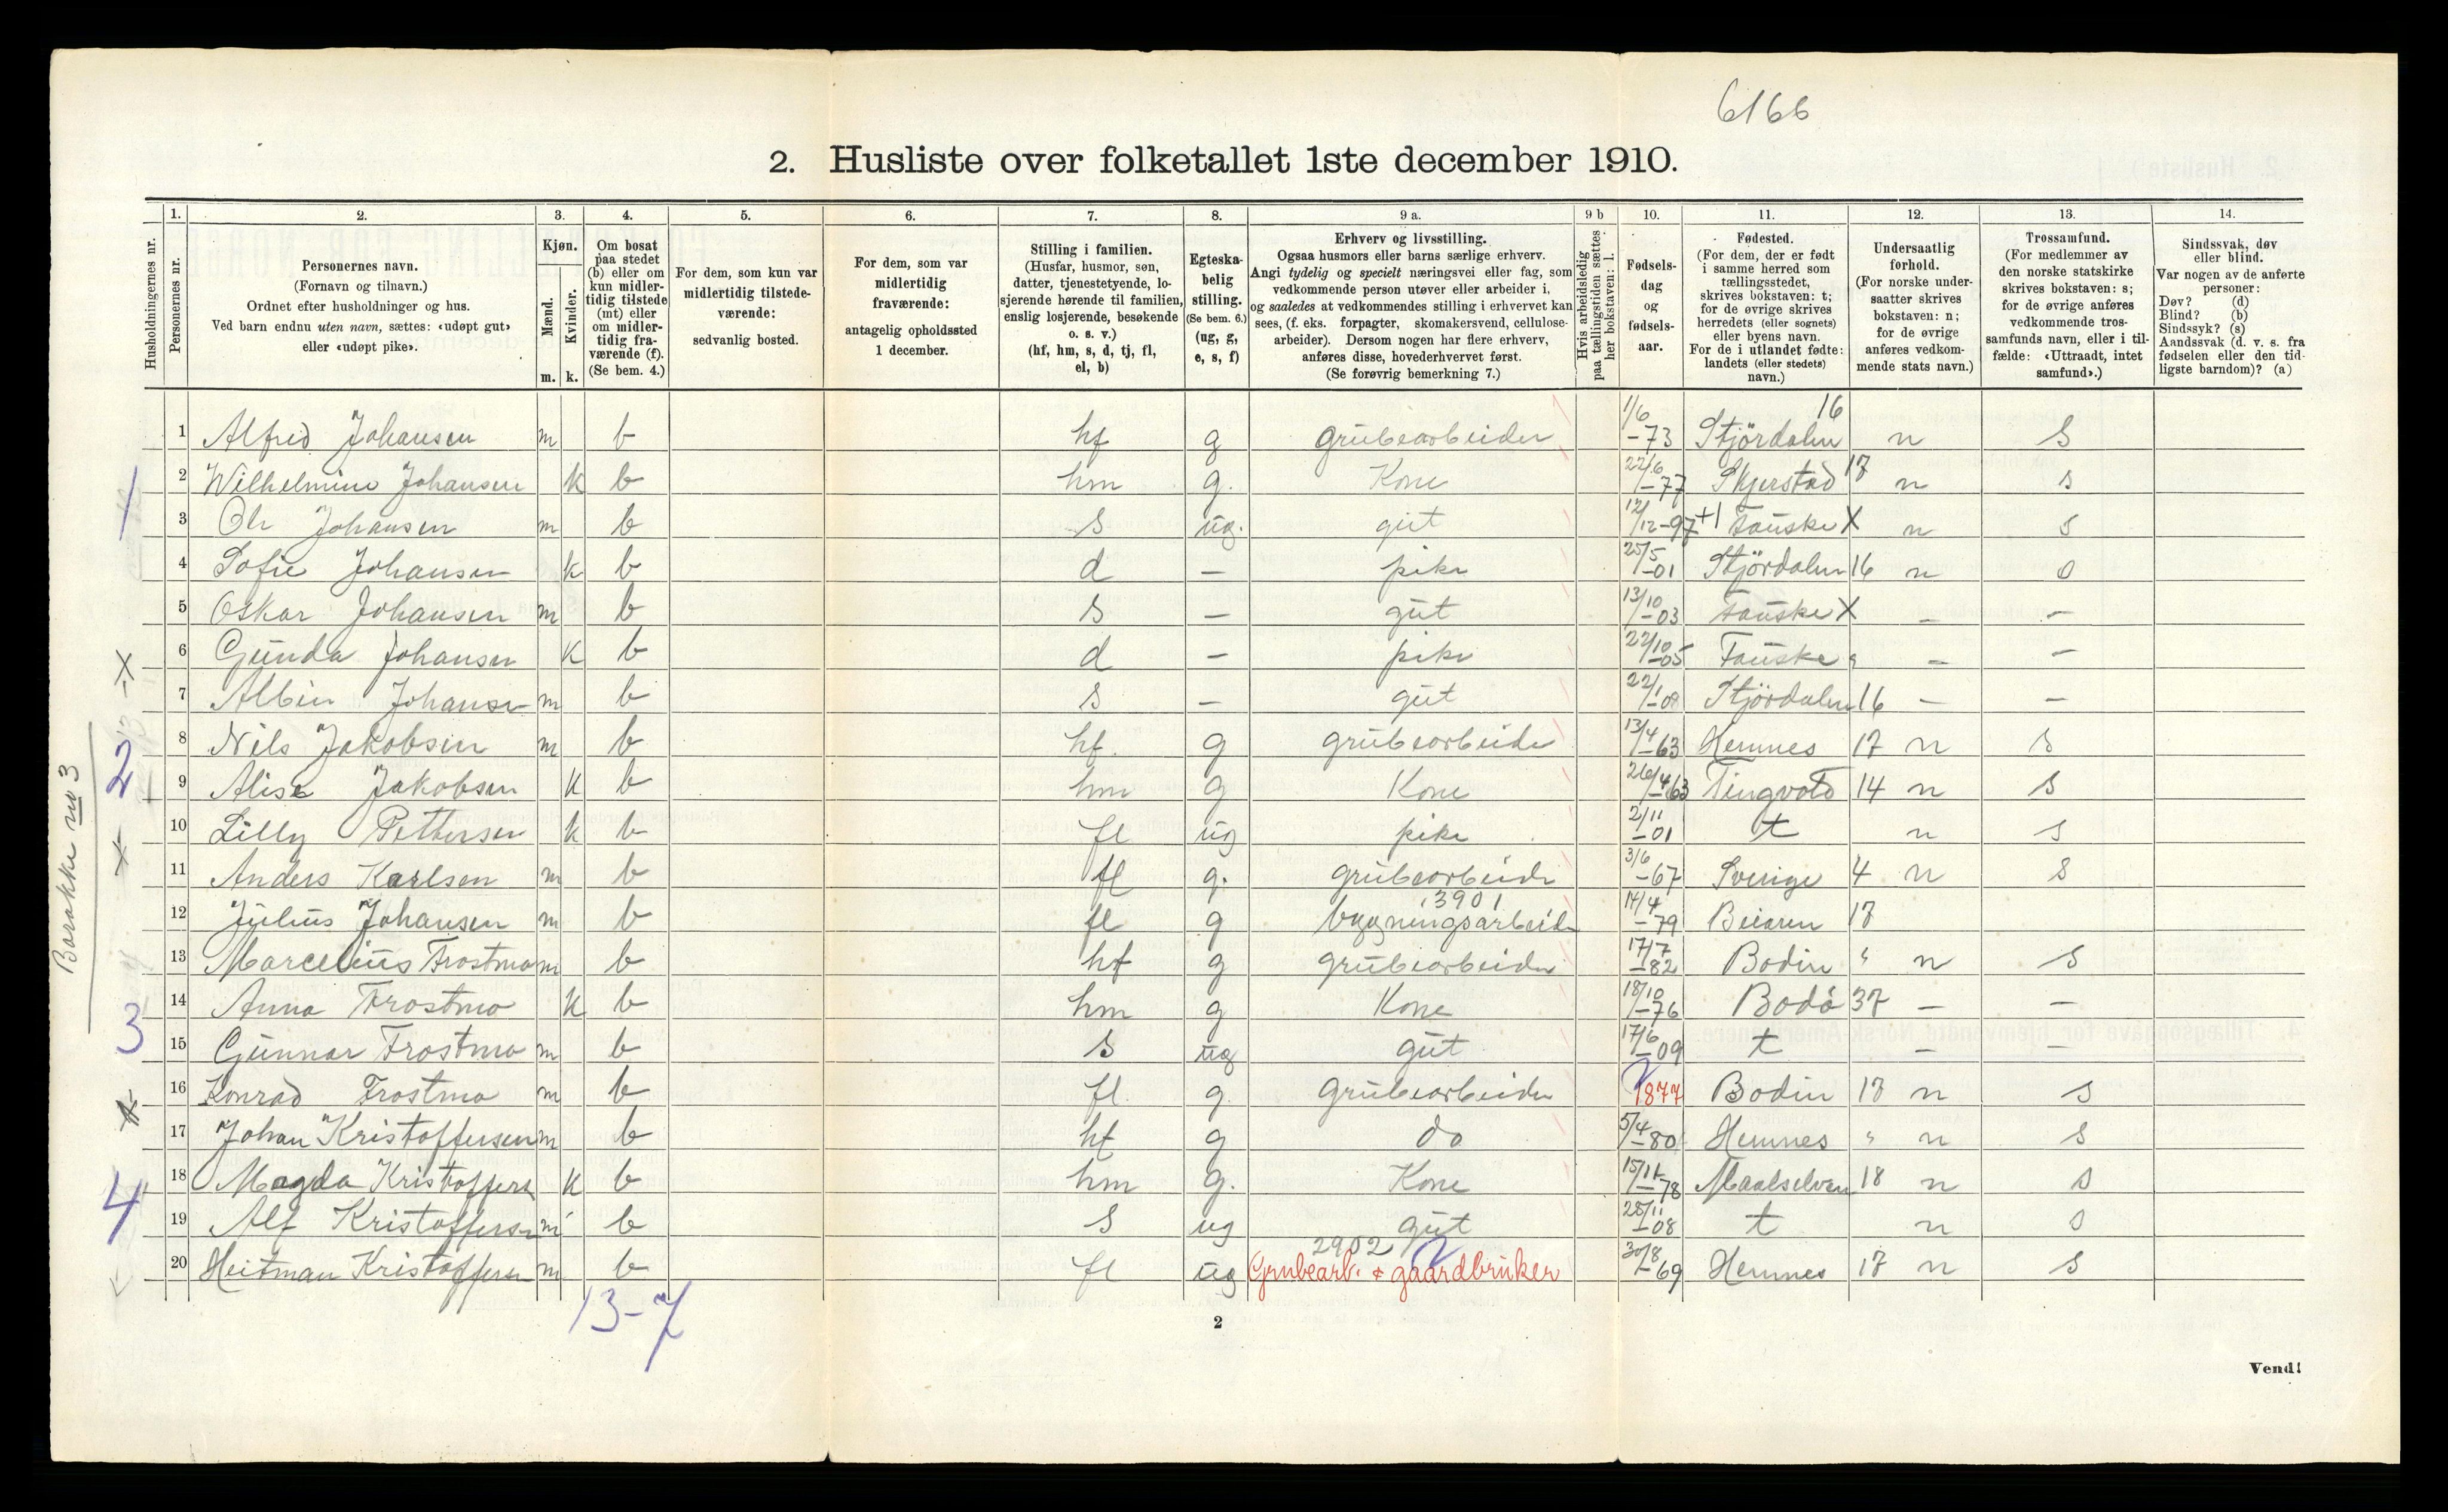 6166
2. Husliste over folketallet 1ste december 1910.
Husholdningernes nr.
1. Personernes nr.
2. Personernes navn.
(Fornavn og tilnavn.)
Ordnet efter husholdninger og hus.
Ved barn endnu uten navn, sættes: «udøpt gut»
eller «udøpt pike».
3. Kjøn.
Mænd. m.
Kvinder. k.
4. Om bosat
paa stedet
(b) eller om
kun midler-
tidig tilstede
(mt) eller
om midler-
tidig fra-
værende (f).
(Se bem. 4.)
5. For dem, som kun var
midlertidig tilstede-
værende:
sedvanlig bosted.
6. For dem, som var
midlertidig
fraværende:
antagelig opholdssted
1 december.
7. Stilling i familien.
(Husfar, husmor, søn,
datter, tjenestetyende, lo-
sjerende hørende til familien,
enslig losjerende, besøkende
o. s. v.)
(hf, hm, s, d, tj, fl,
el, b)
8. Egteska-
belig
stilling.
(Se bem. 6.)
(ug, g,
e, s, f)
9 a. Erhverv og livsstilling.
Ogsaa husmors eller barns særlige erhverv.
Angi tydelig og specielt næringsvei eller fag, som
vedkommende person utøver eller arbeider i,
og saaledes at vedkommendes stilling i erhvervet kan
sees, (f. eks. forpagter, skomakersvend, cellulose-
arbeider). Dersom nogen har flere erhverv,
anføres disse, hovederhvervet først.
(Se forøvrig bemerkning 7.)
9 b Hvis arbeidsledig
paa tællingstiden sættes
her bokstaven: l.
10. Fødsels-
dag
og
fødsels-
aar.
11. Fødested.
(For dem, der er født
i samme herred som
tællingsstedet,
skrives bokstaven: t;
for de øvrige skrives
herredets (eller sognets)
eller byens navn.
For de i utlandet fødte:
landets (eller stedets)
navn.)
12. Undersaatlig
forhold.
(For norske under-
saatter skrives
bokstaven: n;
for de øvrige
anføres vedkom-
mende stats navn.)
13. Trossamfund.
(For medlemmer av
den norske statskirke
skrives bokstaven: s;
for de øvrige anføres
vedkommende tros-
samfunds navn, eller i til-
fælde: «Uttraadt, intet
samfund».)
14. Sindssvak, døv
eller blind.
Var nogen av de anførte
personer:
Døv? (d)
Blind? (b)
Sindssyk? (s)
Aandssvak (d. v. s. fra
fødselen eller den tid-
ligste barndom)? (a)
1 Alfred Johansen m b hf g grubearbeider 1/6 -73 Stjördalen 16 n s
1
2 Wilhelmine Johansen k b hm g. Kone 22/6 -77 Skjerstad 17 n s
3 Ole Johansen m b s ug. gut 12/12 -97 +1 Fauske X n s
4 Sofie Johansen k b d — pike 25/5 -01 Stjördalen 16 n s
5 Oskar Johansen m b s — gut 13/10 -03 Fauske X — —
6 Gunda Johansen k b d — pike 22/10 -05 Fauske " — —
7 Albin Johansen m b s — gut 22/1 -09 Stjördalen 16 — —
Barakke no 3
2
8 Nils Jakobsen m b hf. g grubearbeider 13/4 -63 Hemnes 17 n s
9 Alise Jakobsen k b hm g Kone 26/4 -63 Tingvold 14 n s
10 Lilly Pettersen k b fl ug pike 2/11 -01 t n s
11 Anders Karlsen m b fl g. grubearbeider 3/6 -67 Sverige 4 n s
12 Julius Johansen m b fl g 3901 bygningsarbeider 14/4 -79 Beiaren 17
3
13 Marcelius Frostmo m b hf g grubearbeider 17/7 -82 Bodin " n s
14 Anna Frostmo k b hm g Kone 18/10 -76 Bodö 37 — —
15 Gunnar Frostmo m b s ug gut 17/6 -09 t — —
16 Konrad Frostmo m b fl g. grubearbeider 1877 Bodin 17 n s
4
17 Johan Kristoffersen m b hf g do 5/4 -80 Hemnes " n s
18 Magda Kristoffers k b hm g. Kone 15/11 -78 Maalselven 18 n s
19 Alf Kristoffersen m b s ug gut 28/11 -08 t n s
20 Heitman Kristoffersen m b fl ug 2902 Grubearb. + gaardbruker 30/8 -69 Hemnes 17 n s
13-7
2
Vend!